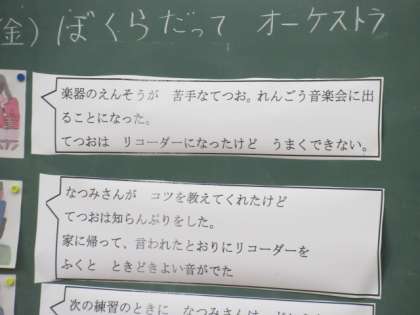 (金) ぼくらだって オーケストラ
楽器のえんそうが 苦手なてつお。れんごう音楽会に出
ることになった。
てつおは リコーダーになったけど うまくできない。
なつみさんが コツを教えてくれたけど
てつおは知らんぷりをした。
家に帰って、言われたとおりにリコーダーを
ふくと ときどきよい音がでた
次の練習のときに なつみさんは